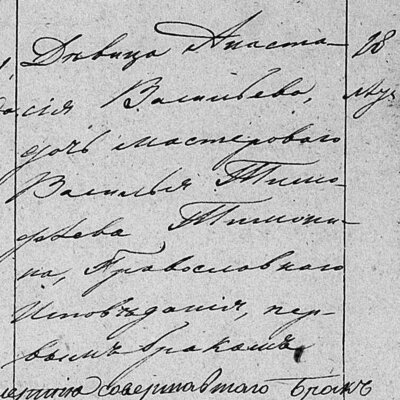 Дѣвица Анаста- 28
сія Васильева,
дочь мастероваго
Василья Тимо-
фѣева Тимони-
на, Православнаго
Исповѣданія, пер-
вымъ бракомъ
совершавшаго бракъ